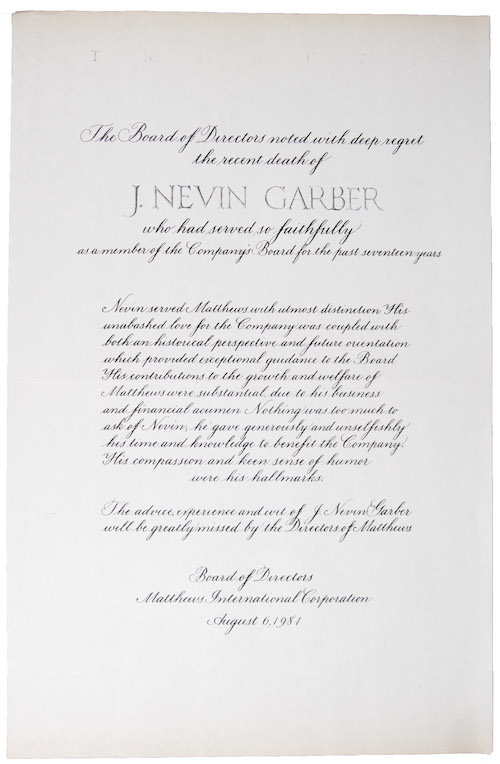 The Board of Directors noted with deep regret
the recent death of
J. NEVIN GARBER
who had served so faithfully
as a member of the Company's Board for the past seventeen years
Nevin served Matthews with utmost distinction. His
unabashed love for the Company was coupled with
both an historical perspective and future orientation
which provided exceptional guidance to the Board.
His contributions to the growth and welfare of
Matthews were substantial, due to his business
and financial acumen. Nothing was too much to
ask of Nevin; he gave generously and unselfishly
his time and knowledge to benefit the Company.
His compassion and keen sense of humor
were his hallmarks.
The advice, experience and wit of J. Nevin Garber
will be greatly missed by the Directors of Matthews
Board of Directors
Matthews International Corporation
August 6, 1981